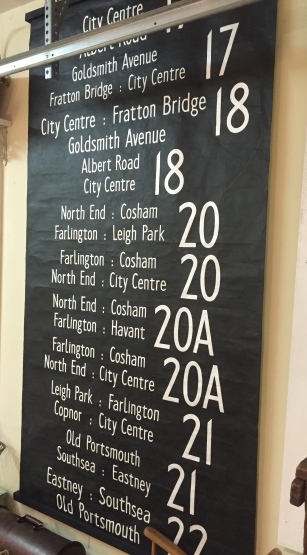 City Centre 17
Albert Road
Goldsmith Avenue
Fratton Bridge : City Centre 17
City Centre : Fratton Bridge
Goldsmith Avenue 18
Albert Road
City Centre 18
North End : Cosham
Farlington : Leigh Park 20
Farlington : Cosham
North End : City Centre 20
North End : Cosham
Farlington : Havant 20A
Farlington : Cosham
North End : City Centre 20A
Leigh Park : Farlington
Copnor : City Centre 21
Old Portsmouth
Southsea : Eastney 21
Eastney : Southsea
Old Portsmouth 22